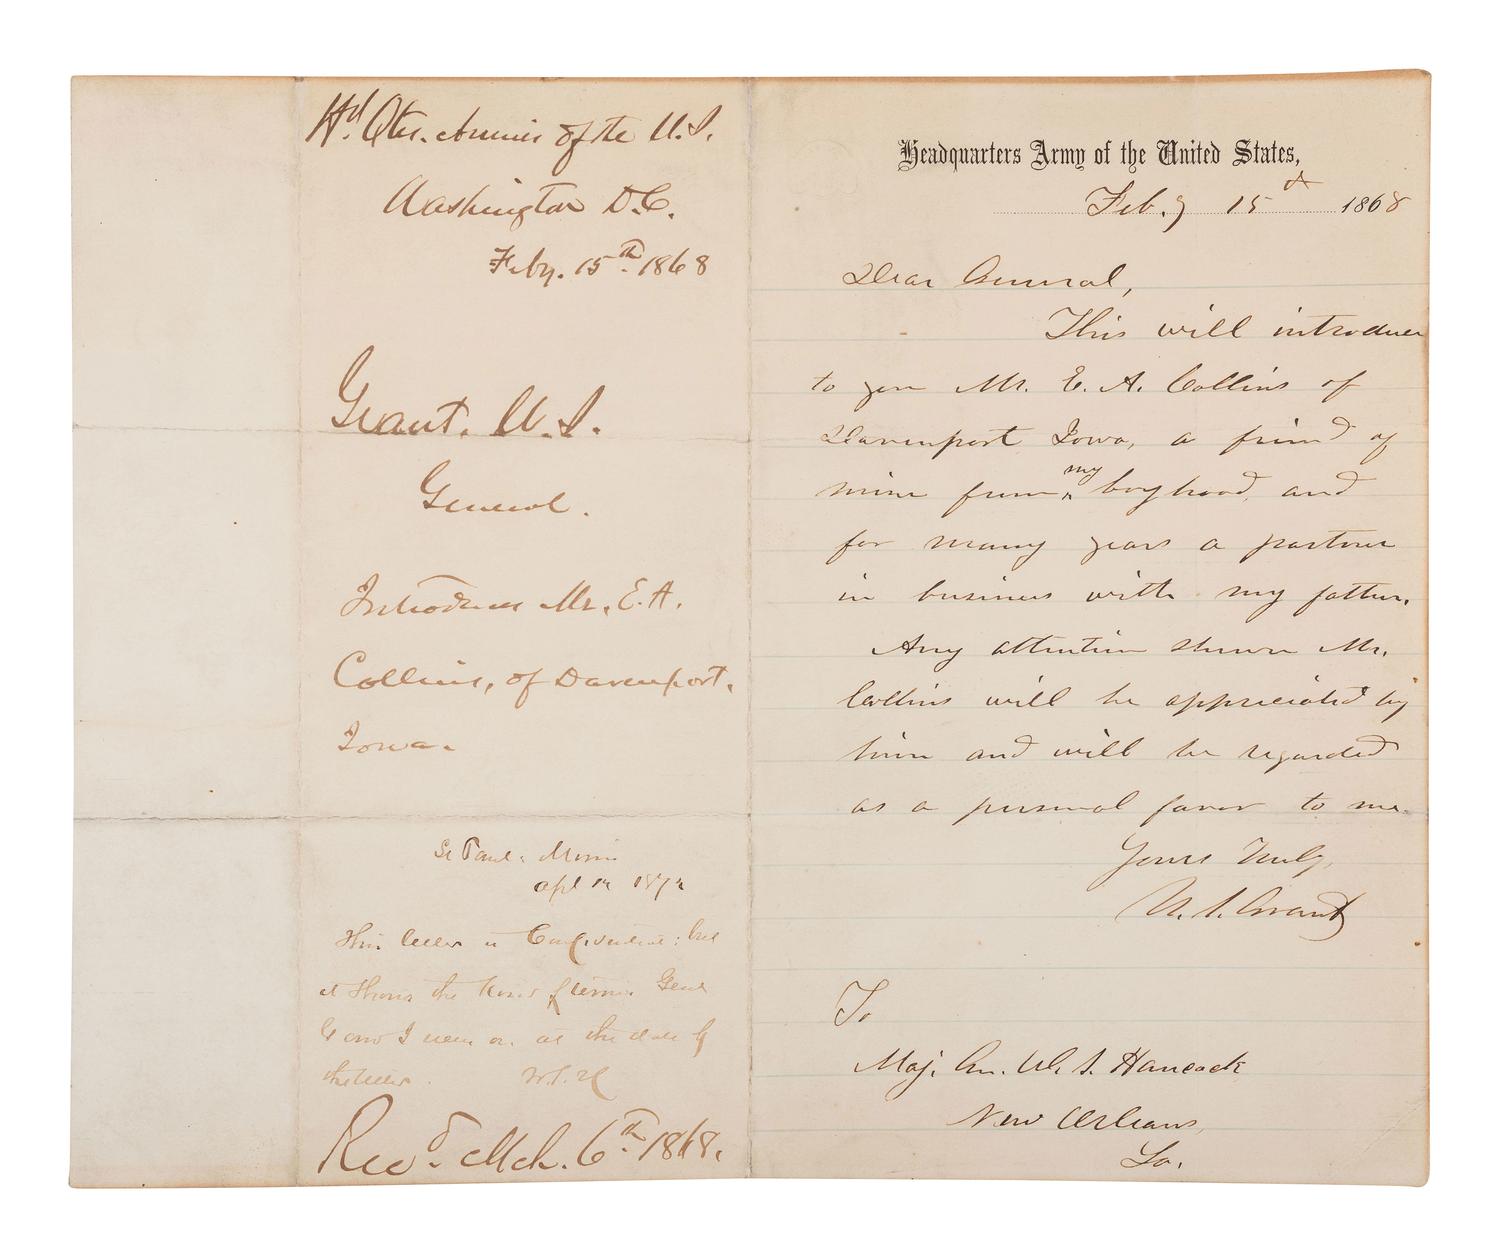 Hd. Qtrs. Armies of the U.S.
Washington D.C.
Feby. 15th. 1868
Grant. U.S.
General.
Introduces Mr. E.A.
Collins, of Davenport,
Iowa.
St Paul. Minn
Apl 1872
This letter is : but
it shows the terms Genl
Grant I were on at the date of
the letter. W.S.H
Recd. Mch. 6th. 1868.
Headquarters Army of the United States,
Feb.y 15th 1868
Dear General,
This will introduce
to you Mr. E. A. Collins of
Davenport Iowa, a friend of
mine from my boyhood, and
for many years a partner
in business with my father.
Any attention shown Mr.
Collins will be appreciated by
him and will be regarded
as a personal favor to me.
Yours Truly,
U. S. Grant
To
Maj. Gn. W. S. Hancock
New Orleans,
La.